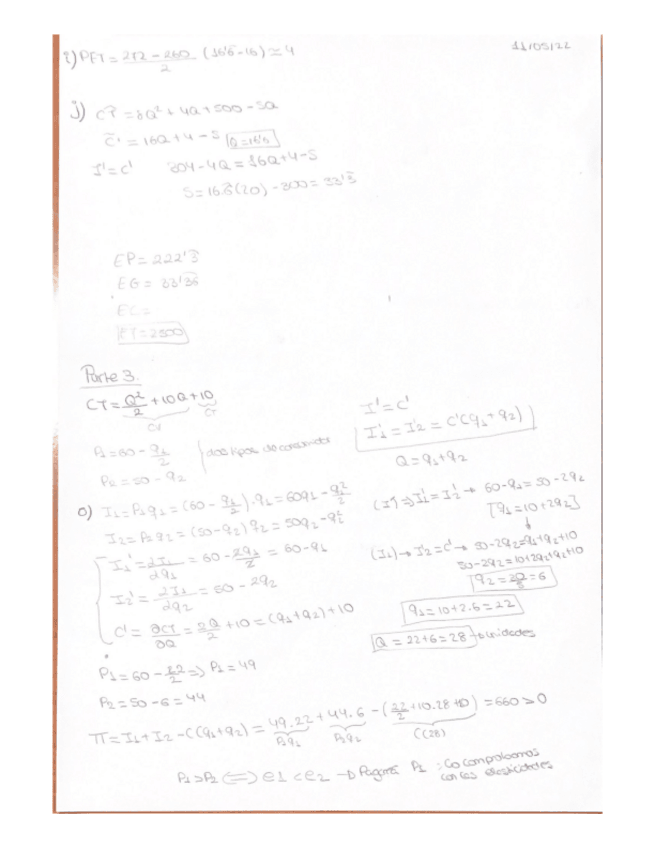 11/05/22
i) PET = 272 - 260 / 2 (16'6 - 16) ≃ 4
j) CT = 8Q² + 4Q + 500 - SQ
C' = 16Q + 4 - S Q = 16'6
I' = C' 304 - 4Q = 16Q + 4 - S
S = 16.6(20) - 300 = 33'3
EP = 222'3
EG =
EC =
ET = 2500
Parte 3
CT = Q²/2 + 10Q + 10
CV CT
P1 = 60 - q1/2
P2 = 50 - q2
dos tipos de consumidor
I' = C'
I1' = I2' = C'(q1 + q2)
Q = q1 + q2
a) I1 = P1q1 = (60 - q1/2) · q1 = 60q1 - q1²/2
I2 = P2q2 = (50 - q2) q2 = 50q2 - q2²
I1' = ∂I1/∂q1 = 60 - 2q1/2 = 60 - q1
I2' = ∂I2/∂q2 = 50 - 2q2
C' = ∂CT/∂Q = 2Q/2 + 10 = (q1 + q2) + 10
(I') ⇒ I1' = I2' → 60 - q1 = 50 - 2q2
[q1 = 10 + 2q2]
(I1) → I2' = C' → 50 - 2q2 = q1 + q2 + 10
50 - 2q2 = 10 + 2q2 + q2 + 10
q2 = 30/5 = 6
q1 = 10 + 2.6 = 22
Q = 22 + 6 = 28 → unidades
P1 = 60 - 22/2 ⇒ P1 = 49
P2 = 50 - 6 = 44
π = I1 + I2 - C(q1 + q2) = 49.22 + 44.6 - (22/2 + 10.28 + 10) = 660 > 0
P1q1 P2q2 C(28)
P1 > P2 ⟺ e1 < e2 → Pagará P1 : Lo comprobamos
con las elasticidades